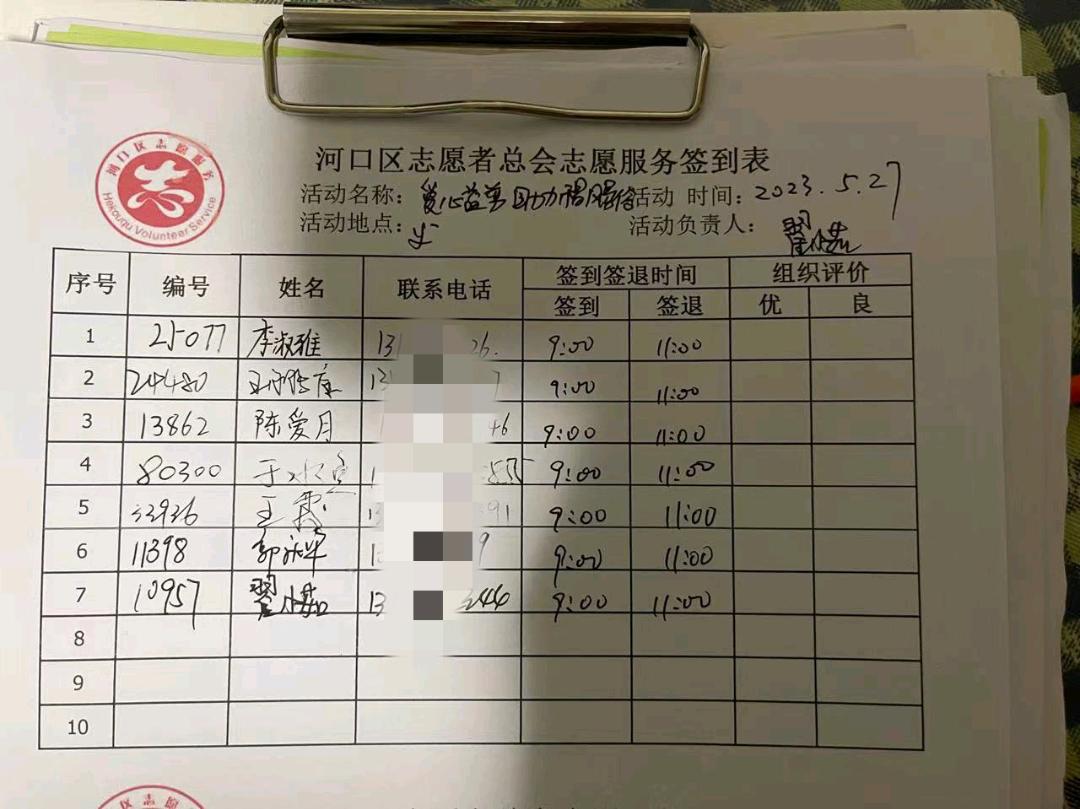 河口区志愿服务
Hekouqu Volunteer Service
河口区志愿者总会志愿服务签到表
活动名称: 爱心益剪 助力 活动 时间: 2023.5.27
活动地点: 活动负责人: 翟
序号 编号 姓名 联系电话 签到签退时间 组织评价
签到 签退 优 良
1 25077 李淑雅 13 26. 9:00 11:00
2 24480 王 13 7 9:00 11:00
3 13862 陈爱月 1 46 9:00 11:00
4 80300 于水 1 855 9:00 11:00
5 33936 王霞 13 391 9:00 11:00
6 11398 郭永华 13 9 9:00 11:00
7 10957 翟 13 3244 9:00 11:00
8
9
10